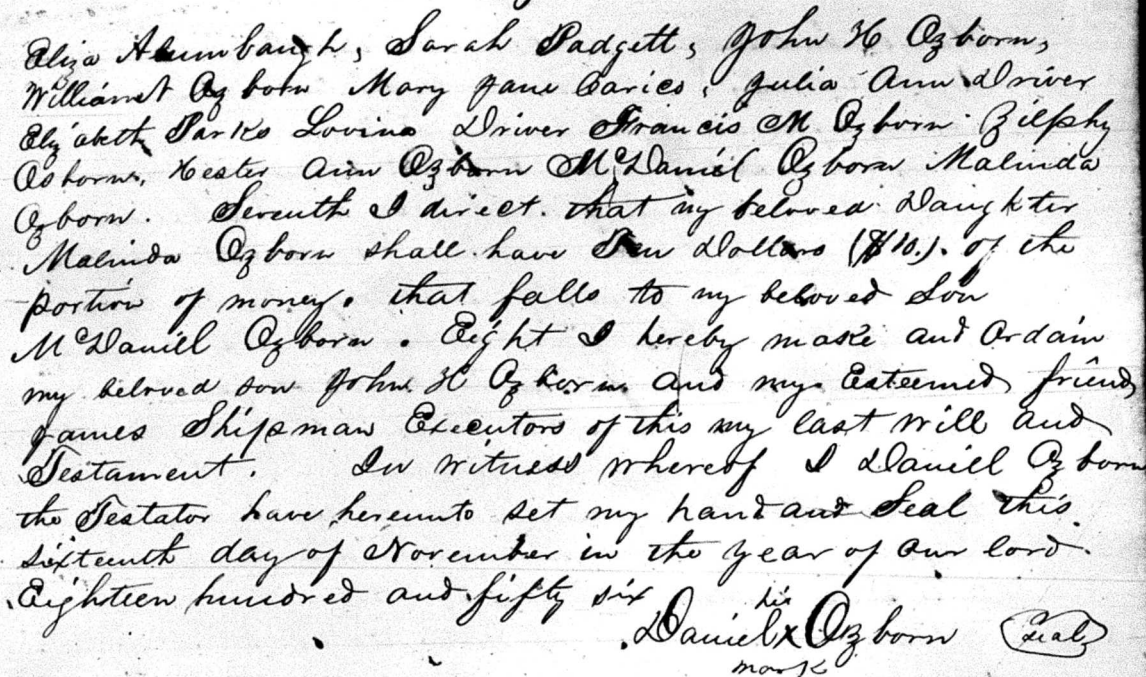 Eliza Alumbaugh, Sarah Padgett, John H Ozborn,
William T Ozborn Mary Jane Carico, Julia Ann Driver
Elizabeth Parks Lovina Driver Francis M Ozborn Zilphy
Osborn, Hester Ann Ozborn McDaniel Ozborn Malinda
Ozborn. Seventh I direct. that my beloved Daughter
Malinda Ozborn shall have Ten Dollars ($10.). of the
portion of money. that falls to my beloved Son
McDaniel Ozborn. Eight I hereby make and ordain
my beloved son John H Ozborn and my Esteemed friend
James Shipman Executors of this my last will and
Testament. In witness whereof I Daniel Ozborn
the Testator have hereunto set my hand and Seal this
sixteenth day of November in the year of our lord.
Eighteen hundred and fifty six
his
Daniel x Ozborn (Seal)
mark